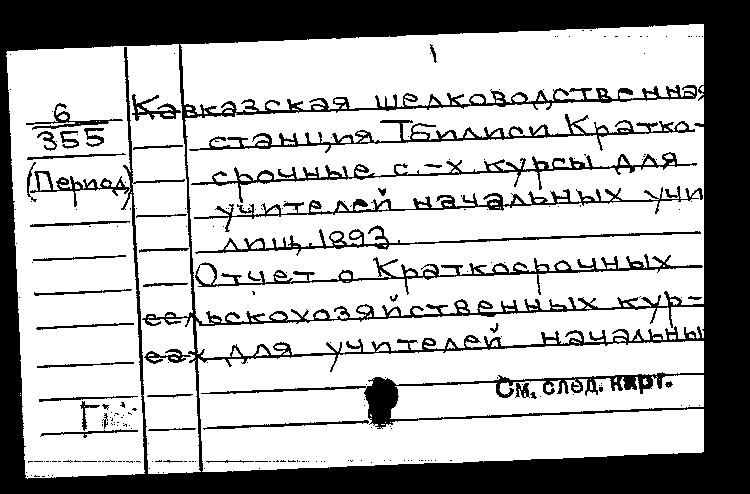 1
6
355
(Период)
Кавказская шелководственная
станция. Тбилиси Кратко-
срочные с.-х. курсы для
учителей начальных учи
лищ. 1893.
Отчет о Краткосрочных
сельскохозяйственных кур-
сах для учителей начальны
См. след. карт.